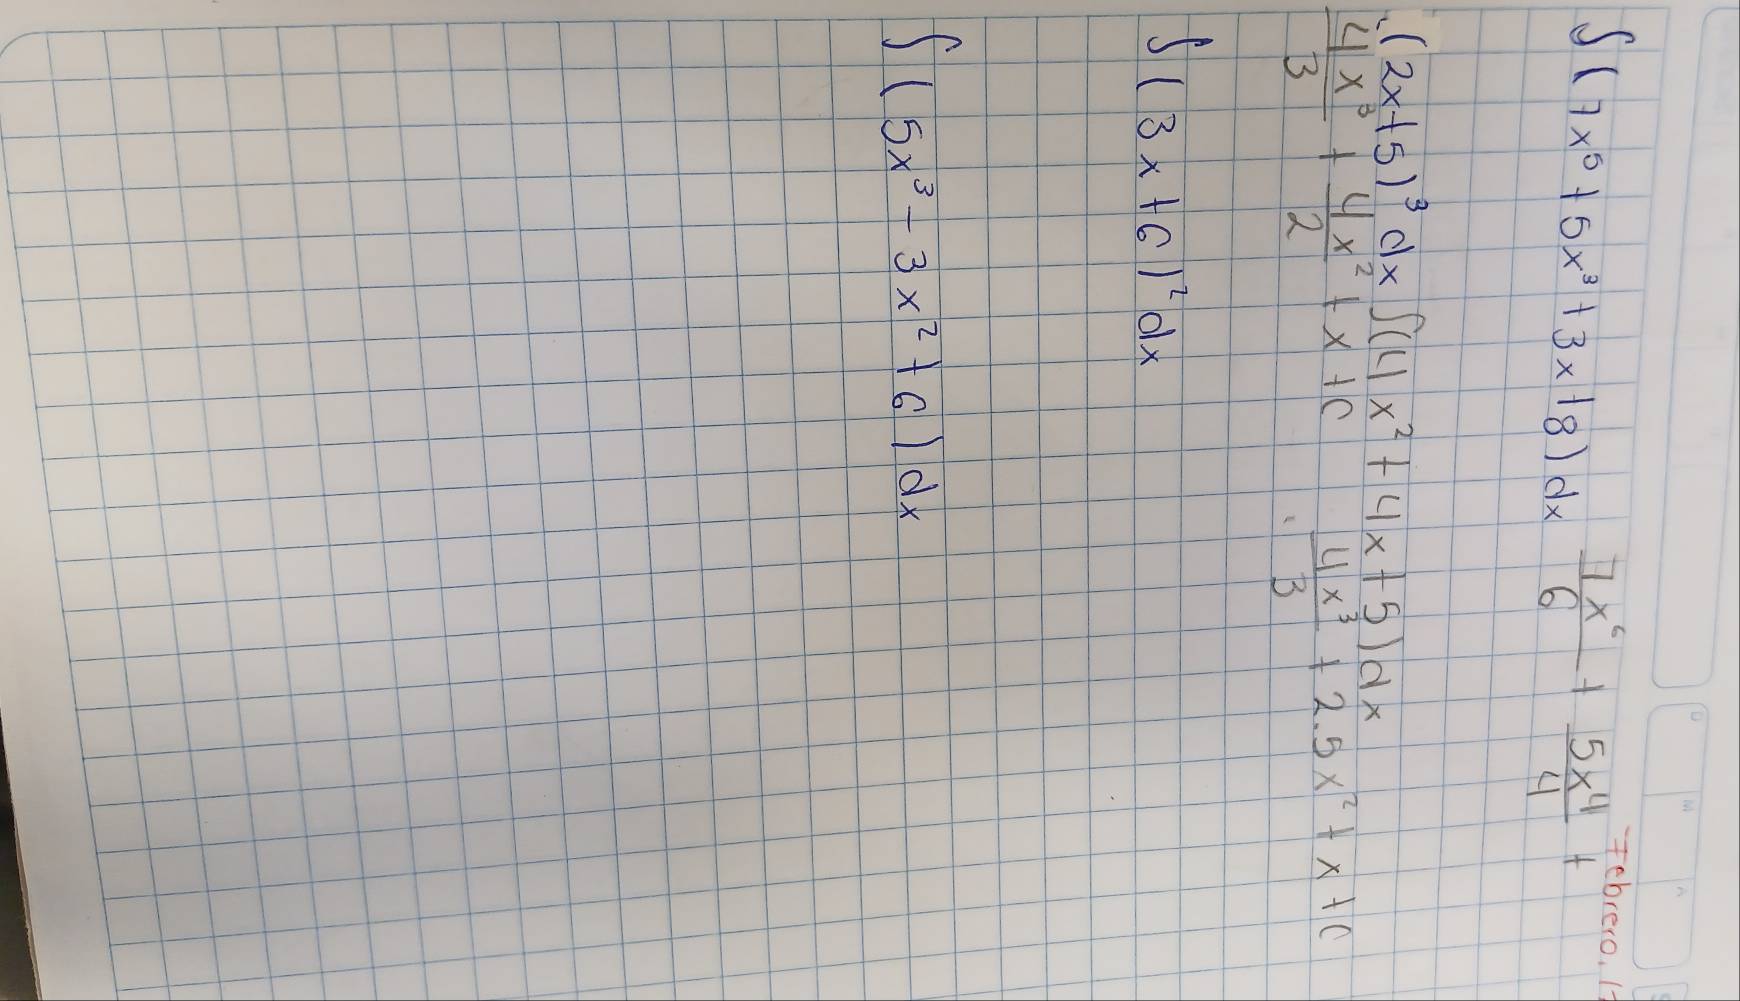 Febrero, 17
∫(7x⁵+5x³+3x+8)dx 7x⁶/6 + 5x⁴/4 +
(2x+5)³dx ∫(4x²+4x+5)dx
4x³/3 + 4x²/2 + x + C 4x³/3 + 2.5x² + x + C
∫(3x+6)²dx
∫(5x³-3x²+6)dx